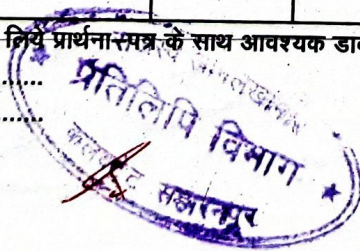 लिये प्रार्थना-पत्र के साथ आवश्यक डा
........
........
प्रतिलिपि विभाग
कलक्ट्रेट सहारनपुर